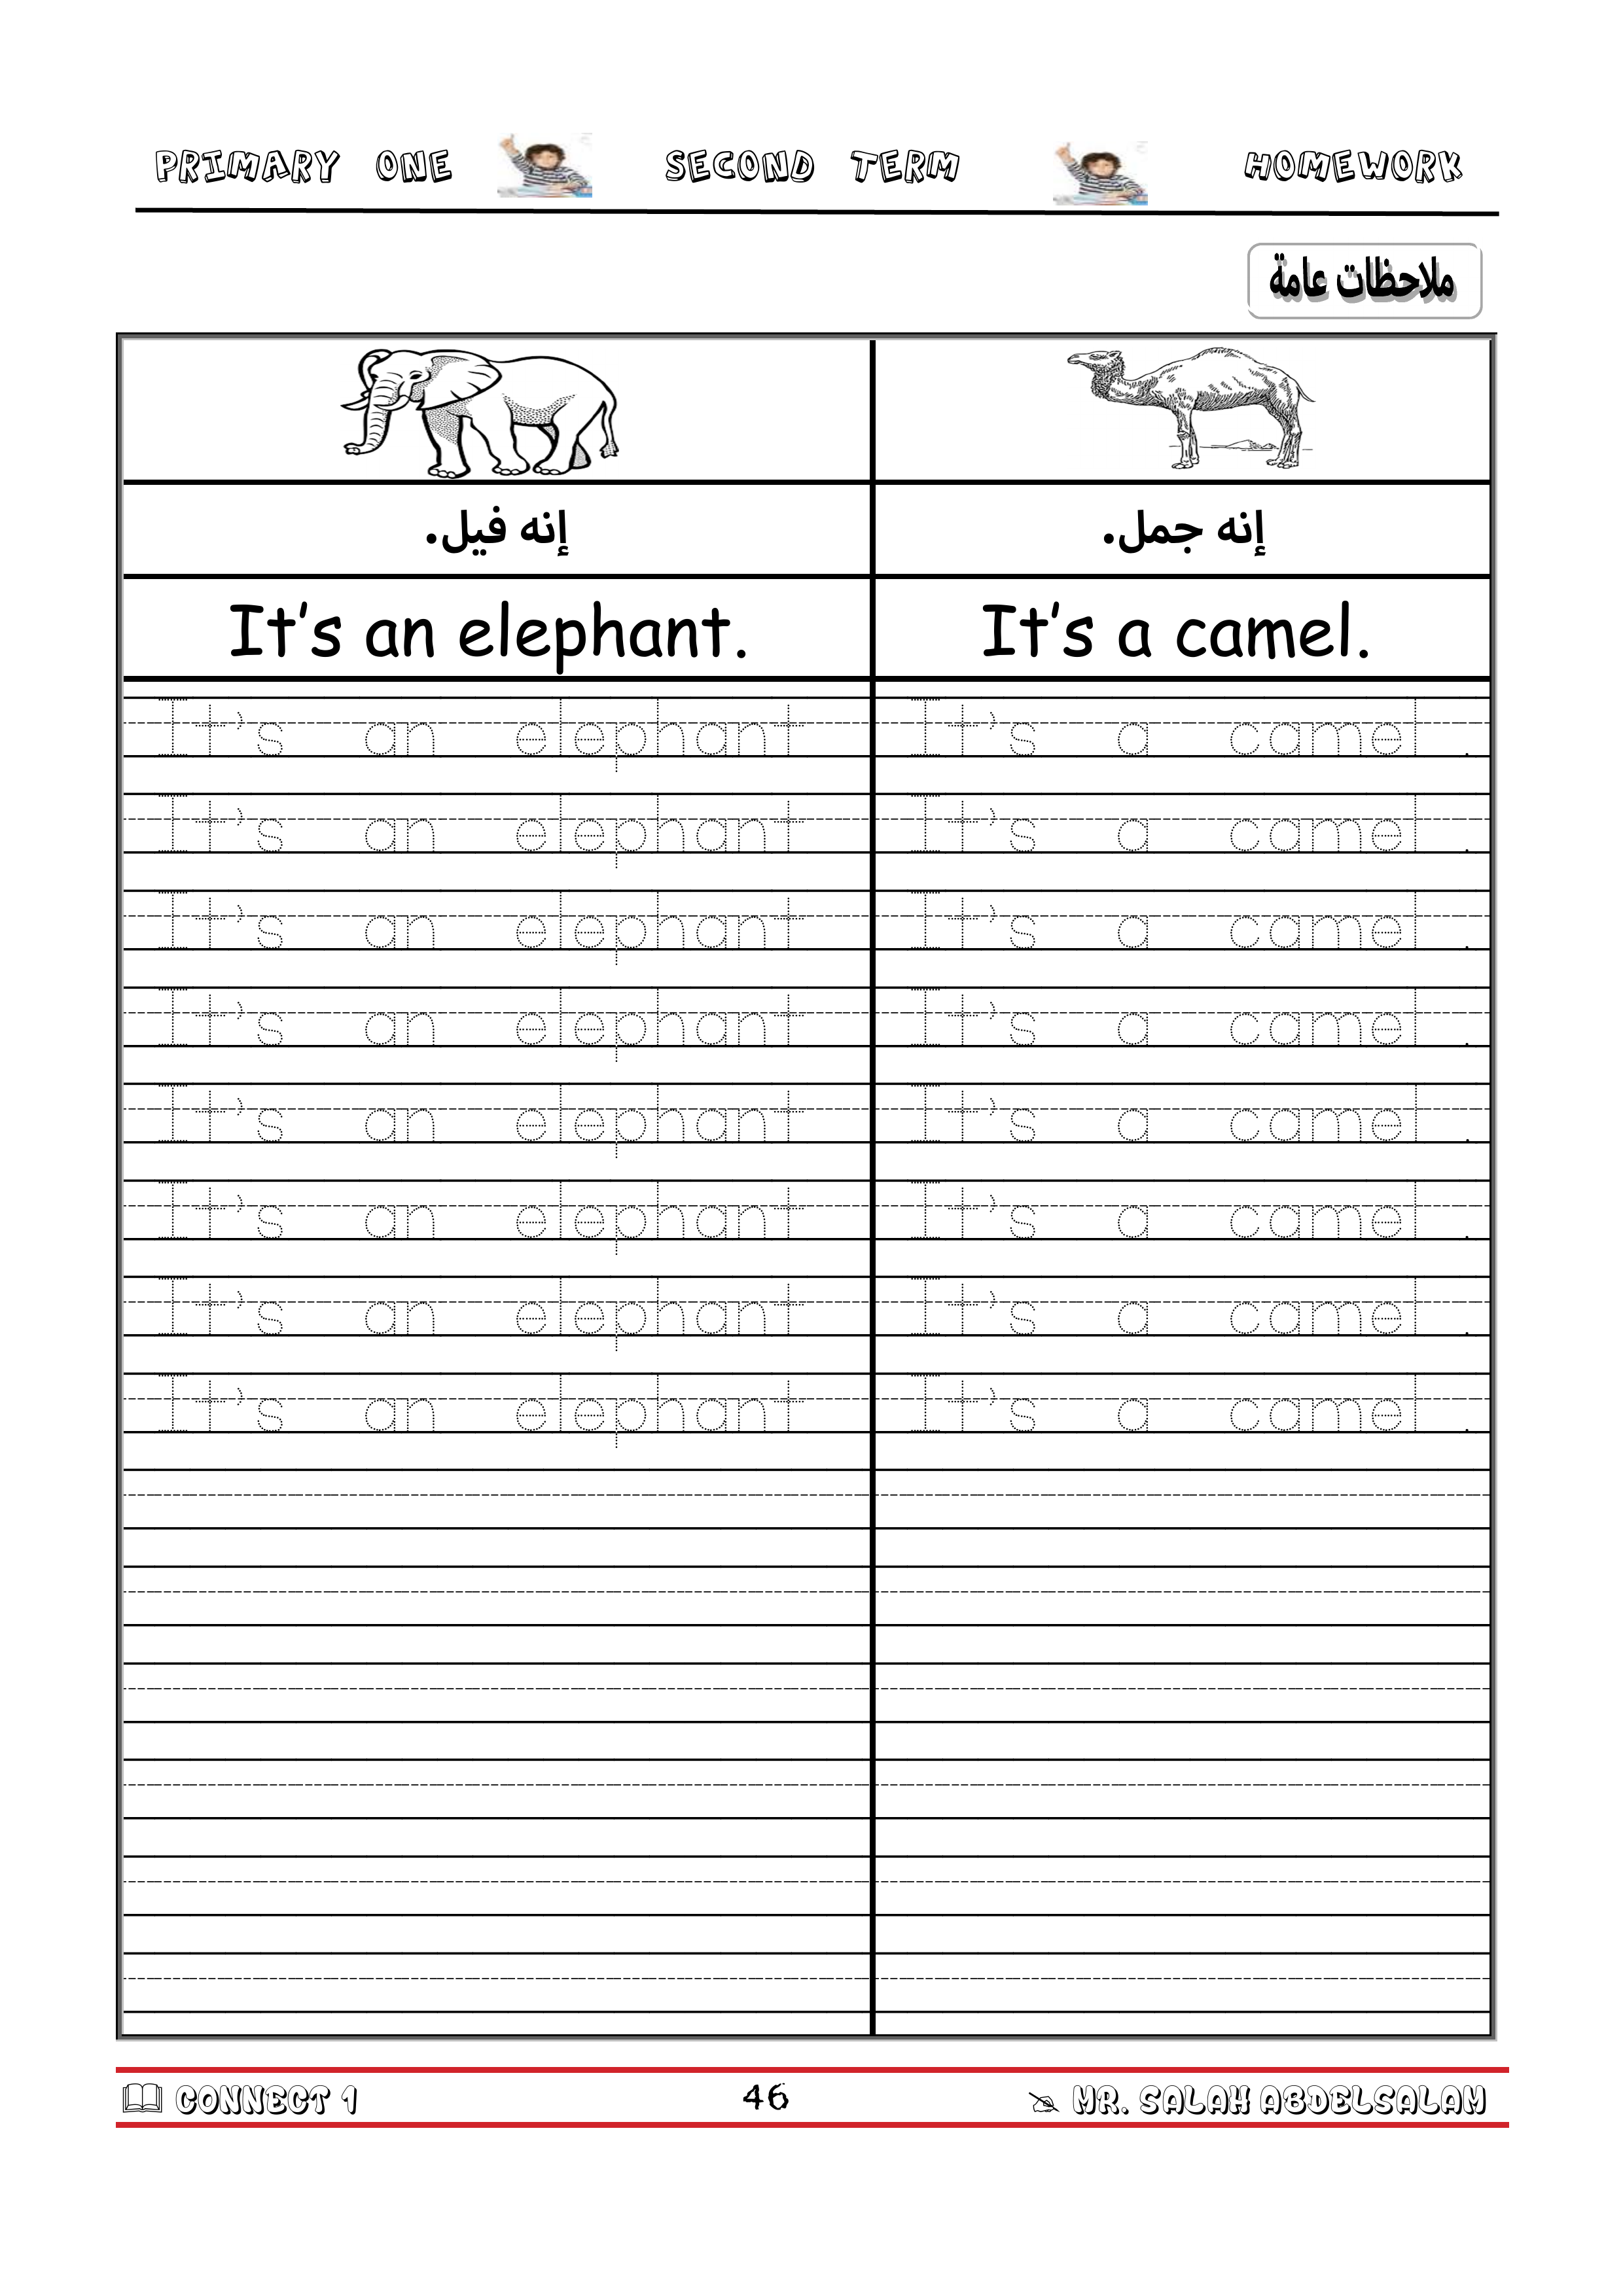 PRIMARY ONE SECOND TERM HOMEWORK
ملاحظات عامة
إنه فيل. إنه جمل.
It's an elephant. It's a camel.
It's an elephant It's a camel .
It's an elephant It's a camel .
It's an elephant It's a camel .
It's an elephant It's a camel .
It's an elephant It's a camel .
It's an elephant It's a camel .
It's an elephant It's a camel .
It's an elephant It's a camel .
CONNECT 1 46 MR. SALAH ABDELSALAM